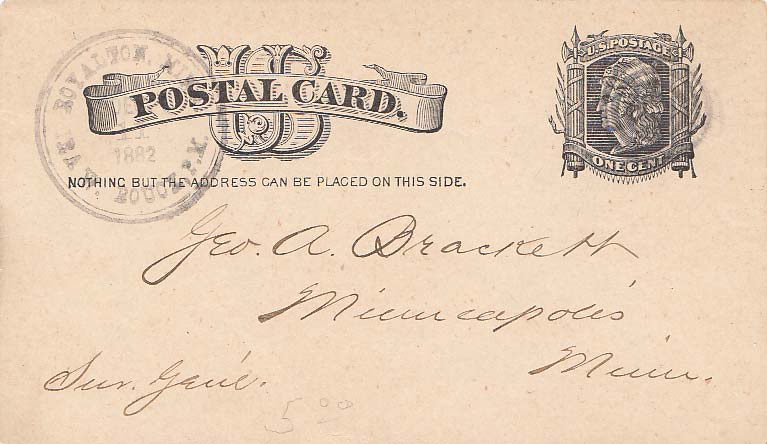 ROYALTON, MINN.
1882
U.S.
POSTAL CARD.
U.S. POSTAGE
ONE CENT
NOTHING BUT THE ADDRESS CAN BE PLACED ON THIS SIDE.
Geo. A. Brackett
Minneapolis
Minn.
Sur. Genl.
5 00